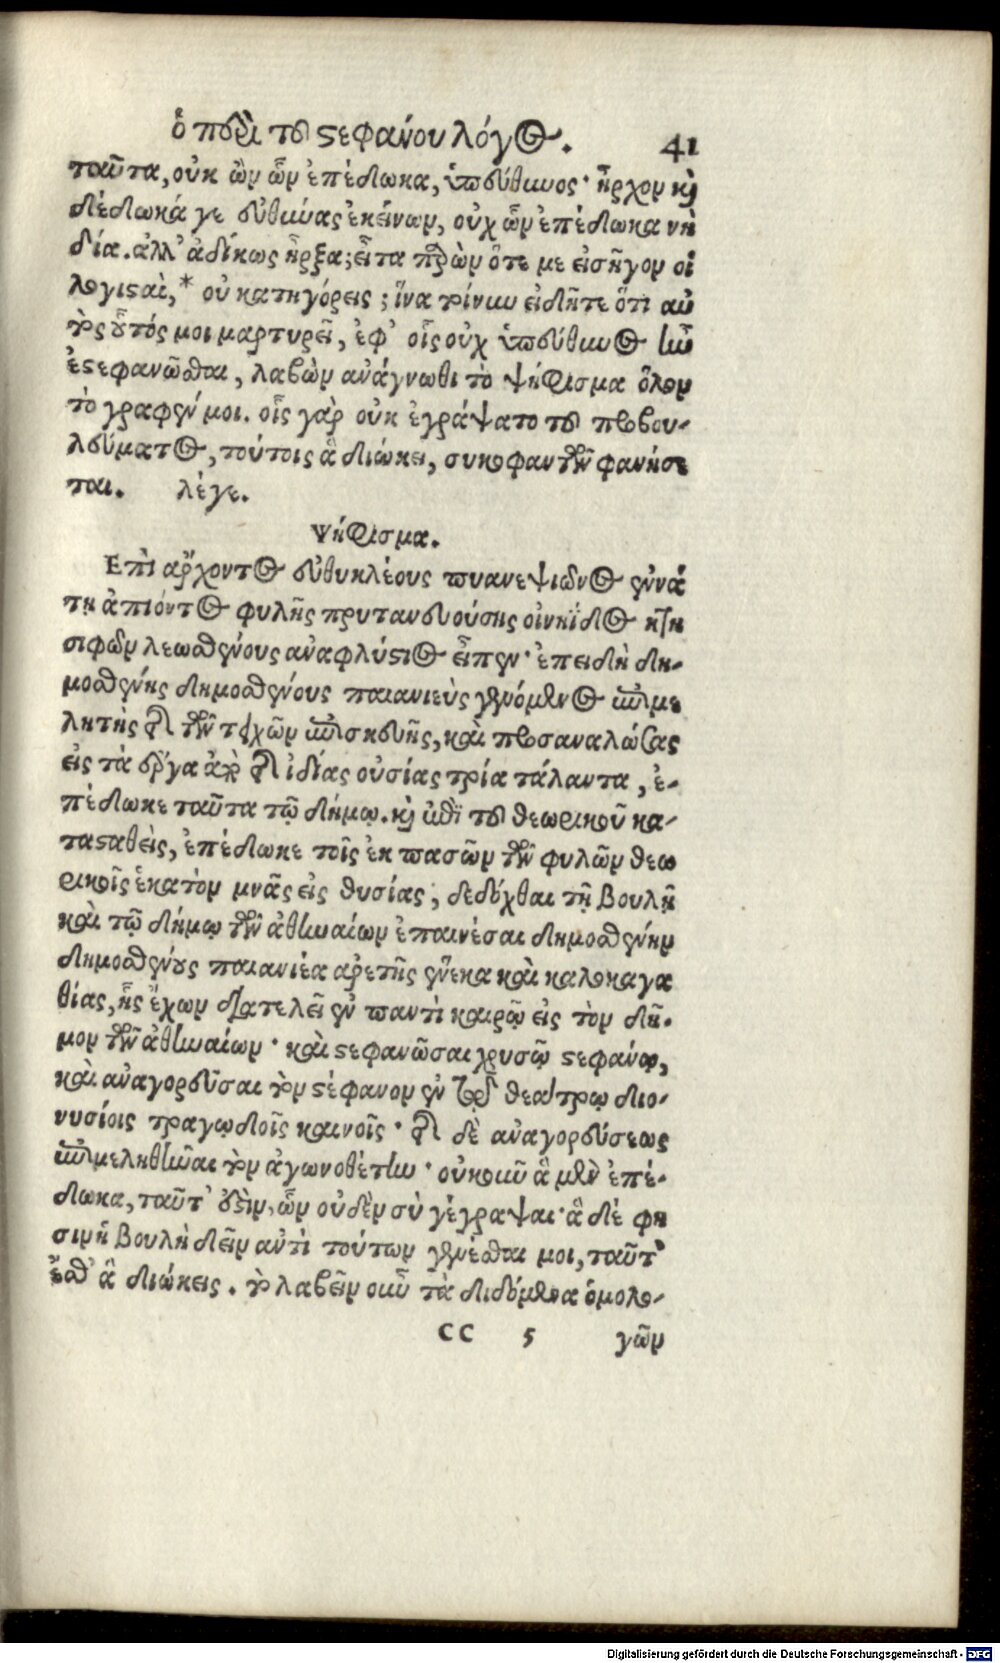 ὁ περὶ τοῦ στεφάνου λόγος. 41
ταῦτα, οὐκ ὢν ὧν ἐπέδωκα, ὑπεύθυνος· ἦρχον καὶ
δέδωκά γε εὐθύνας ἐκείνων, οὐχ ὧν ἐπέδωκα νὴ
δία. ἀλλ' ἀδίκως ἦρξα; εἶτα παρὼν ὅτε με εἰσῆγον οἱ
λογισταὶ,* οὐ κατηγόρεις; ἵνα τοίνυν εἰδῆτε ὅτι αὐ
τὸς οὗτός μοι μαρτυρεῖ, ἐφ' οἷς οὐχ ὑπεύθυνος ἦν
ἐστεφανῶσθαι, λαβὼν ἀνάγνωθι τὸ ψήφισμα ὅλον
τὸ γραφέν μοι. οἷς γὰρ οὐκ ἐγράψατο τοῦ προβου-
λεύματος, τούτοις ἃ διώκει, συκοφαντῶν φανήσε
ται. λέγε.
Ψήφισμα.
Επὶ ἄρχοντος εὐθυκλέους πυανεψιῶνος ἐννά
τῃ ἀπιόντος φυλῆς πρυτανευούσης οἰνηΐδος κτη
σιφῶν λεωσθένους ἀναφλύστιος εἶπεν· ἐπειδὴ δη-
μοσθένης δημοσθένους παιανιεὺς γενόμενος ἐπιμε
λητὴς τῆς τῶν τειχῶν ἐπισκευῆς, καὶ προσαναλώσας
εἰς τὰ ἔργα ἀπὸ τῆς ἰδίας οὐσίας τρία τάλαντα, ἐ-
πέδωκε ταῦτα τῷ δήμῳ. καὶ ἐπὶ τοῦ θεωρικοῦ κα-
τασταθεὶς, ἐπέδωκε τοῖς ἐκ πασῶν τῶν φυλῶν θεω
ρικοῖς ἑκατὸν μνᾶς εἰς θυσίας, δεδόχθαι τῇ βουλῇ
καὶ τῷ δήμῳ τῶν ἀθηναίων ἐπαινέσαι δημοσθένην
δημοσθένους παιανιέα ἀρετῆς ἕνεκα καὶ καλοκαγα
θίας, ἧς ἔχων διατελεῖ ἐν παντὶ καιρῷ εἰς τὸν δῆ-
μον τῶν ἀθηναίων· καὶ στεφανῶσαι χρυσῷ στεφάνῳ,
καὶ ἀναγορεῦσαι τὸν στέφανον ἐν τῷ θεάτρῳ διο-
νυσίοις τραγῳδοῖς καινοῖς· τῆς δὲ ἀναγορεύσεως
ἐπιμεληθῆναι τὸν ἀγωνοθέτην· οὐκοῦν ἃ μὲν ἐπέ-
δωκα, ταῦτ' ἔστιν, ὧν οὐδὲν σὺ γέγραψαι· ἃ δέ φη
σιν ἡ βουλὴ δεῖν ἀντὶ τούτων γενέσθαι μοι, ταῦτ'
ἔσθ' ἃ διώκεις. τὸ λαβεῖν οὖν τὰ διδόμενα ὁμολο-
CC 5 γῶν
Digitalisierung gefördert durch die Deutsche Forschungsgemeinschaft - DFG